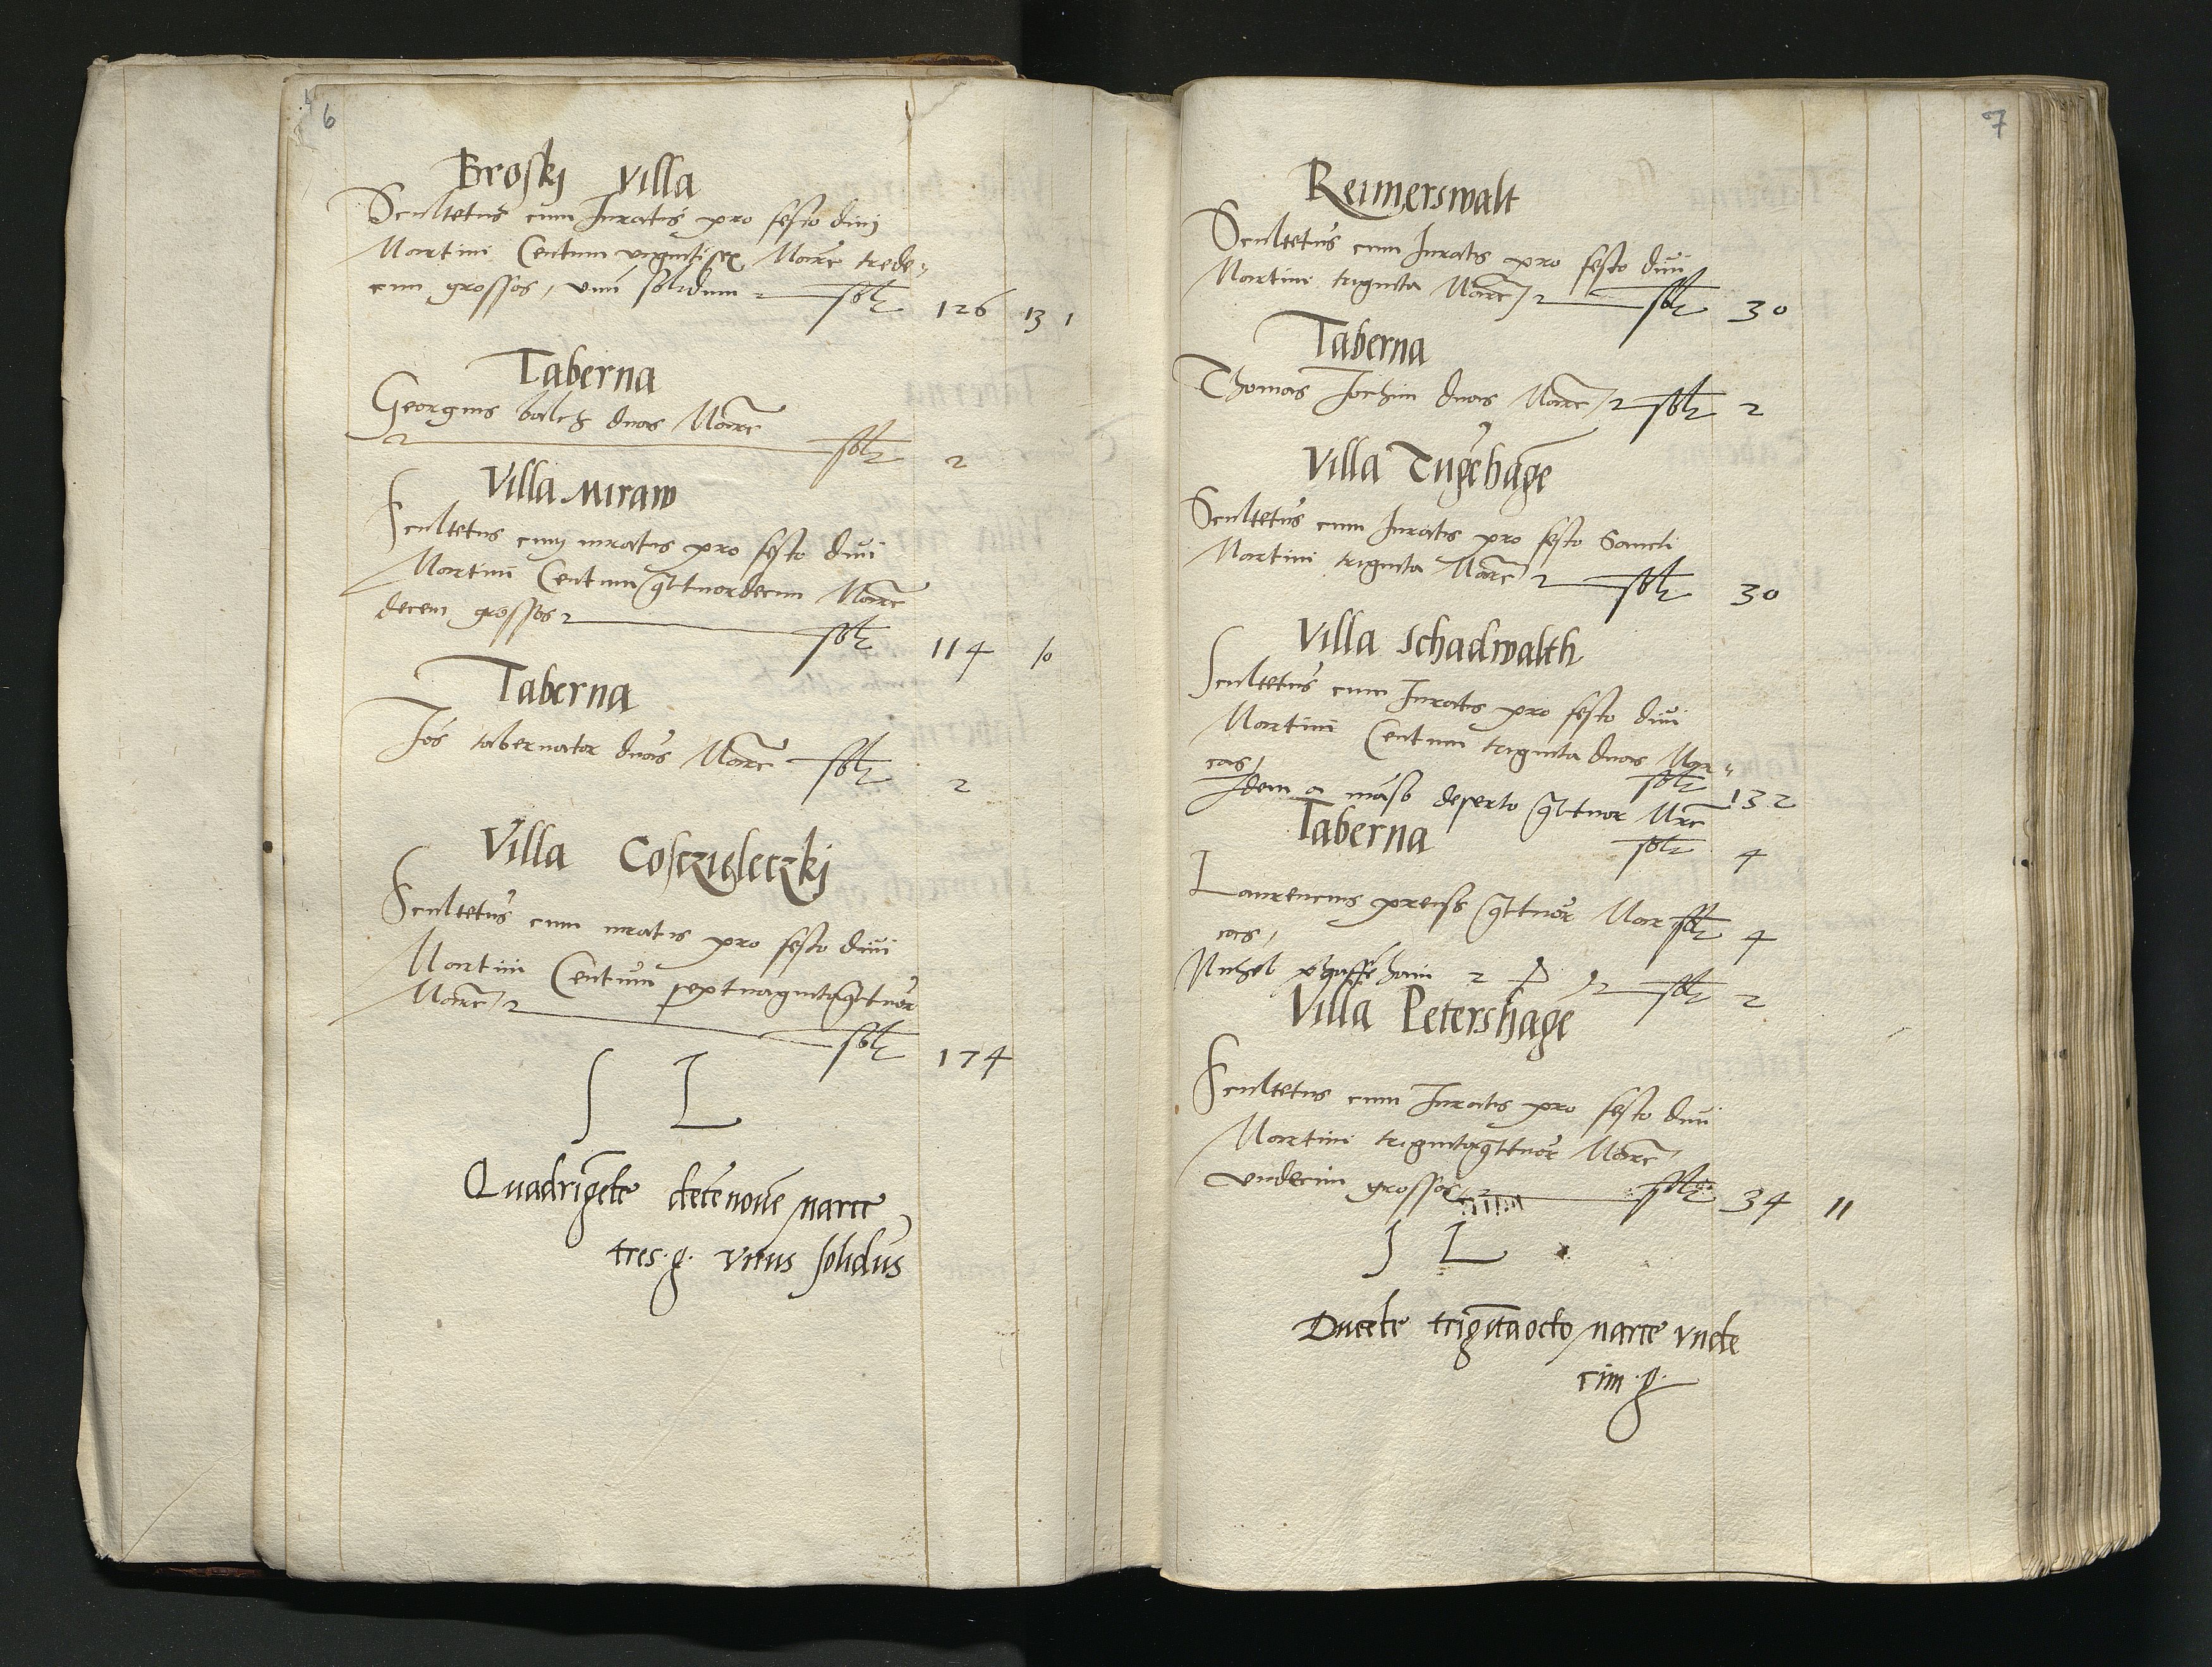 6
Brosky villa
Scultetus cum Juratis pro festo divi
Martini Centum vigintisex Marc trede„
cim grossos, unu solidum solt 126 13 1
Taberna
Georgius balcz duas Marc
solt 2
Villa Miraw
Scultetus cum iuratis pro festo divi
Martini Centum qttuordecim Marc
decem grossos solt 114 10
Taberna
Jos tabernator duas Marc solt 2
Villa Cosczieleczkj
Scultetus cum iuratis pro festo divi
Martini Centum septuagintaqttuor
Marc solt 174
S L
Quadrigete decenove marce
tres g. unus solidus
7
Reimerswalt
Scultetus cum Juratis pro festo divi
Martini triginta Marc solt 30
Taberna
Thomas Jochim duas Marc solt 2
Villa Tugehage
Scultetus cum Juratis pro festo Sancti
Martini triginta Marc solt 30
Villa Schadwalth
Scultetus cum Juratis pro festo divi
Martini Centum triginta duas Mar„
cas solt 132
Idem a manso deserto qttuor Mrc
solt 4
Taberna
Laurencius preiss qttuor Mar solt 4
cas,
Michel 2 solt 2
Villa Petershage
Scultetus cum Juratis pro festo divi
Martini trigintaqttuor Marc
undecim grossos solt 34 11
S L
Ducete trigitaocto marce unde
cim g.